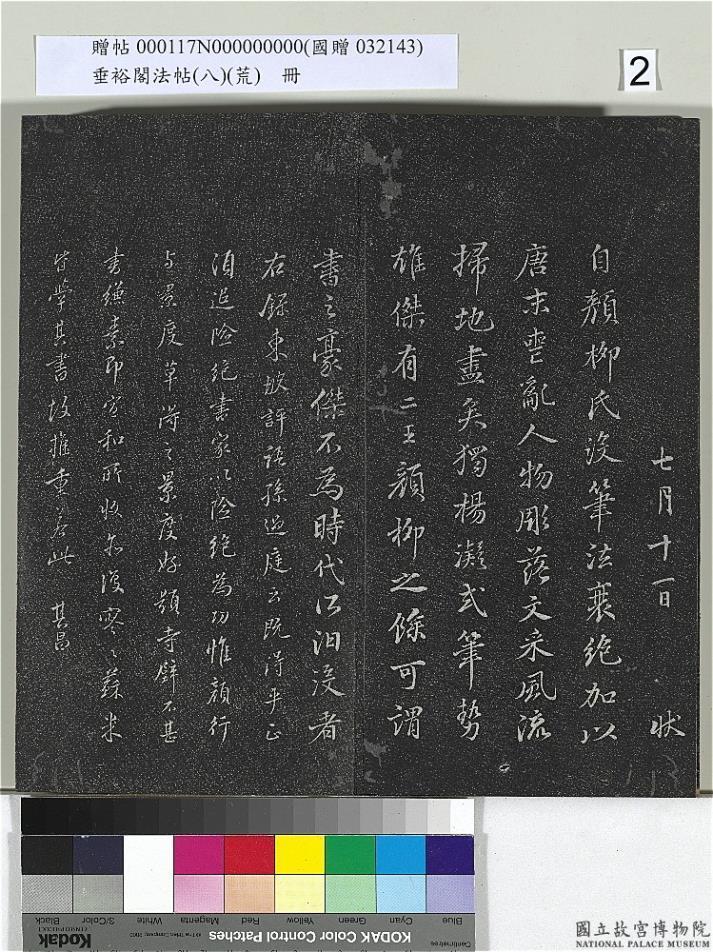 贈帖 000117N000000000(國贈 032143)
垂裕閣法帖(八)(荒) 冊
2
七月十一日 狀
自顏柳氏沒筆法衰絕加以
唐末喪亂人物彫落文采風流
掃地盡矣獨楊凝式筆勢
雄傑有二王顏柳之餘可謂
書之豪傑不為時代所汩沒者
右錄東坡評語孫過庭云既得平正
須追險絕書家以險絕為功惟顏行
与景度草得之景度好題寺壁不甚
書縑素即宣和所收亦復寥〻蘇米
皆學其書故推重若此 其昌
Blue
Cyan
Green
Yellow
Red
Magenta
White
3/Color
Black
KODAK Color Control Patches
Kodak
Centimetres
國立故宮博物院
NATIONAL PALACE MUSEUM